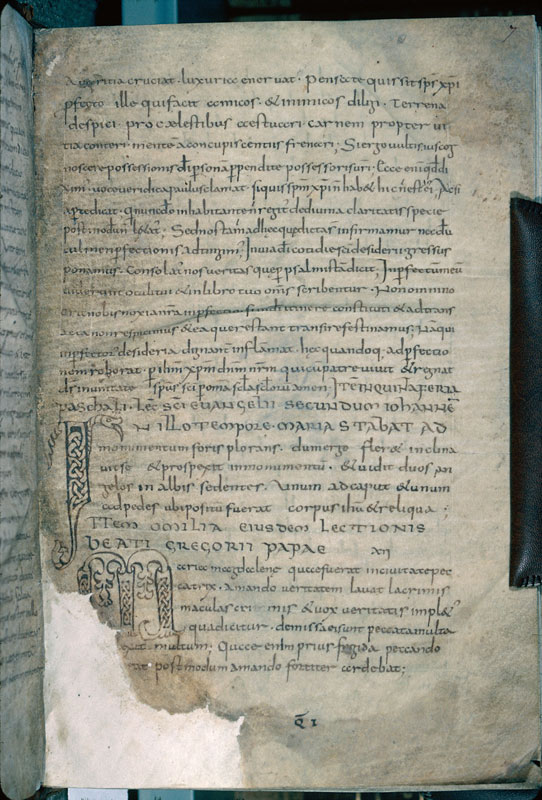 Avaritia cruciat. luxuria enervat. Pensate quis sit sps xpi
profecto ille qui facit amicos. & inimicos diligi. Terrena
despici. pro caelestibus aestuari. carnem propter vi
tia conteri. mente a concupiscentiis frenari; Si ergo vultis vim cog
noscere possessionis di ipsam ppendite possessoris vri. Ecce enim qd di
ximus voce veridica paulus clamat. siquis spm xpi n hab& hic n est ei; Acsi
apte dicat. qui nunc do inhabitante n regit de divina claritatis specie
post modum l&at. Sed nos tam ad hec que dicta s infirmamur necdu
culmen pfectionis adtingim; In via di cotidie sci desiderii gressus
ponamus. Consolat nos veritas que p psalmista dicit; Inpfectum meu
viderunt oculi tui & in libro tuo oms scribentur. Non omnino
erit nobis noxia nra inpfectio. si in di itinere constituti & ad trans
acta non respicimus & ea que restant transire festinamus; Na qui
inpfector desideria dignant inflamat. hec quandoq ad pfectio
nem roborat. p ihm xpm dnm nrm qui cu patre vivit & regnat
ds in unitate sps sci p oma scla sclor amen. ITEM QUINTA FERIA
PASCHALI. LEC SCI EVANGELII SECUNDUM IOHANNE
IN ILLO TEMPORE. MARIA STABAT AD
monumentum foris plorans. dum ergo fler& inclina
vit se & prospexit in monumentu. & vidit duos an
gelos in albis sedentes. Unum ad caput & unum
ad pedes ubi positu fuerat corpus ihu & reliqua;
ITEM OMILIA EIUSDEM LECTIONIS
BEATI GREGORII PAPAE
Maria magdalene quae fuerat in civitate pec
catrix. amando veritatem lavat lacrimis
maculas criminis & vox veritatis impl&
qua dicitur. demissa ei sunt peccata multa
exit multum; Quae enim prius frigida peccando
rat postmodum amando fortiter ardebat;
Q I